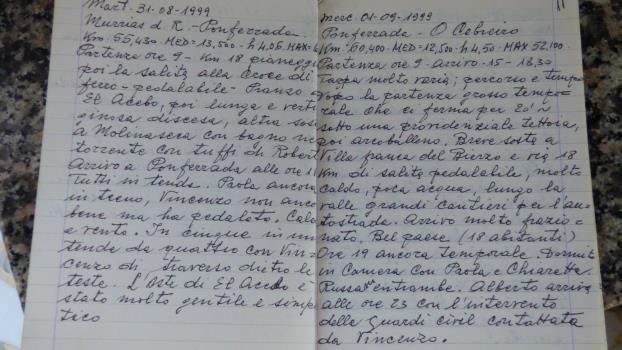 Mart. 31-08-1999
Murrias d R.- Ponferrada.
Km. 55,430 MED=13,500-h 4,06. MAX-6
Partenza ore 9- Km 18 pianeggi
poi la salita alla croce di
ferro-pedalabile- Pranzo
El Acebo, poi lunga e verti
ginosa discesa, altra sos
a Molinaseca con bagno ne
torrente con tuffi di Robert
Arrivo a Ponferrada alle ore 1
Tutti in tenda. Paola ancora
in treno, Vincenzo non anco
bene ma ha pedalato. Caldo
e vento. In cinque in un
tenda da quattro con Vin-
cenzo di traverso dietro le
teste. L'oste di El Acebo è
stato molto gentile e simpa
tico
11
merc. 01-09-1999
Ponferrada - O Cebreiro
Km. 60,400- MED-12,500- h 4,50- MAX 52,100.
Partenza ore 9- Arrivo -15 - 18,30
Tappa molto varia; percorso e tempo
Dopo la partenza grosso tempo-
rale che ci ferma per 20' a
sotto una providenziale tettoia,
poi arcobaleno. Breve sosta a
Villa franca del Bierzo e via 18
Km di salita pedalabile, molto
caldo, poca acqua, lungo la
valle grandi cantieri per l'au
tostrada. Arrivo molto frazio-
nato. Bel paese (18 abitanti)
Ore 19 ancora temporale. Dormit
in Camera con Paola e Chiaretta.
Russan entrambe. Alberto arriva
alle ore 23 con l'intervento
delle guardi civil contattata
da Vincenzo.